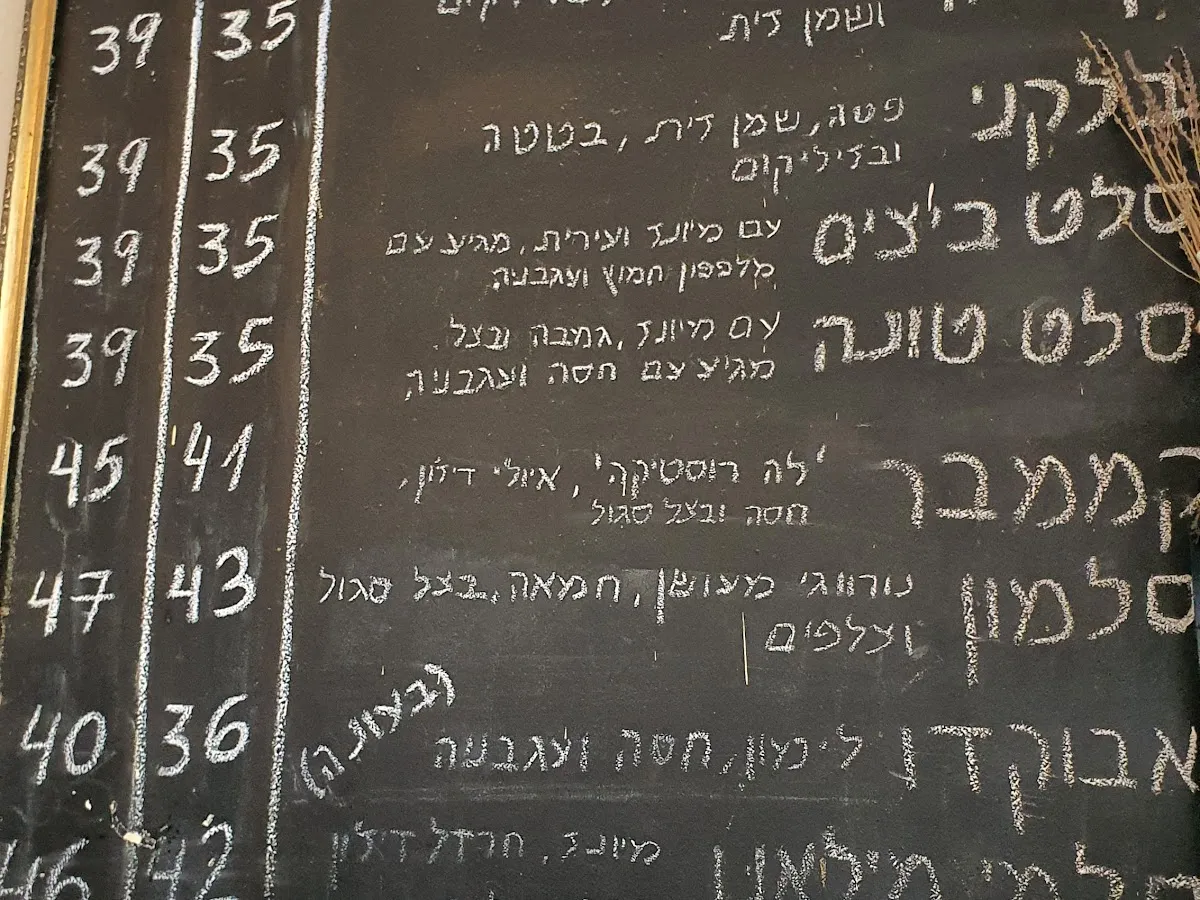 ושמן זית
35 39
בלקני
פטה, שמן זית, בטטה
ובזיליקום
35 39
סלט ביצים
עם מיונז ועירית, מגיע עם
מלפפון חמוץ ועגבניה
35 39
סלט טונה
עם מיונז, גמבה ובצל
מגיע עם חסה ועגבניה
35 39
קממבר
'לה רוסטיקה', איולי דיז'ון,
חסה ובצל סגול
41 45
סלמון
נורווגי מעושן, חמאה, בצל סגול
וצלפים
43 47
אבוקדו
לימון, חסה ועגבניה
(בעונה)
36 40
סלמי מילאנו
מיונז, חרדל דיז'ון
42 46